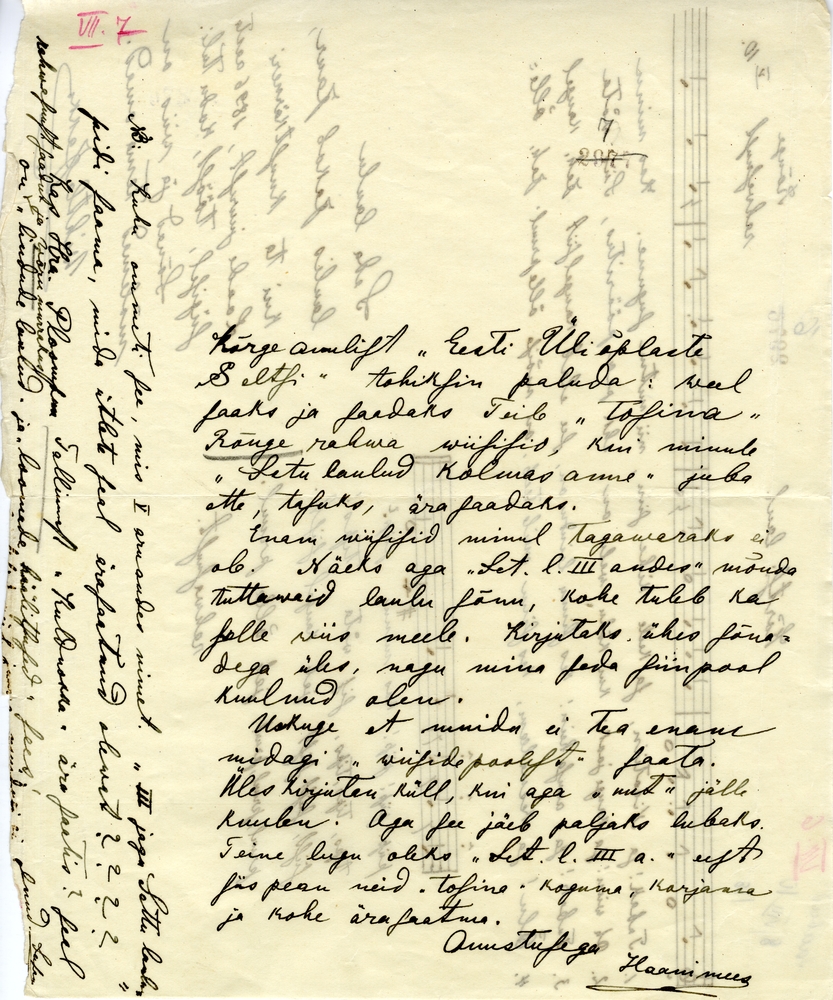 VII. 7.
7
287.
Kõrgeauulist „Eesti Üliõplaste
Seltsi“ tohiksin paluda: weel
saaks ja saadaks Teile „Tosina“
Rõuge rahwa wiisisid, kui minule
„Setu laulud Kolmas anne“ juba
ette, tasuks, ärasaadaks.
Enam wiisisid minul tagawaraks ei
ole. Näeks aga „Set. l. III andes“ mõnda
tuttawaid laulu sõnu, kohe tuleb ka
selle wiis meele. Kirjutaks ühes sõna-
dega üles, nagu mina seda siinpool
kuulnud olen.
Uskuge et muidu ei tea enam
midagi „wiiside poolest“ saata.
Üles kirjutan küll, kui aga „uut“ jälle
kuulen. Aga see jäeb paljaks lubaks.
Teine lugu oleks „Set. l. III a.“ eest
siis pean neid „tosina“ koguma, korjama
ja kohe ärasaatma.
Auustusega
Haanimees
NB. Kulu ommeti see, mis V aruandes nimet. „III jagu Setu laulu“
pidi saama, mida ütlete seal ärasaetand olewat? ? ? ?
Kas Hra. Ploompuu Tallinnast „Kuldnokka“ ära saatis? seal
on „lindude laulud“ ja „loomade häälitsused“ sees,